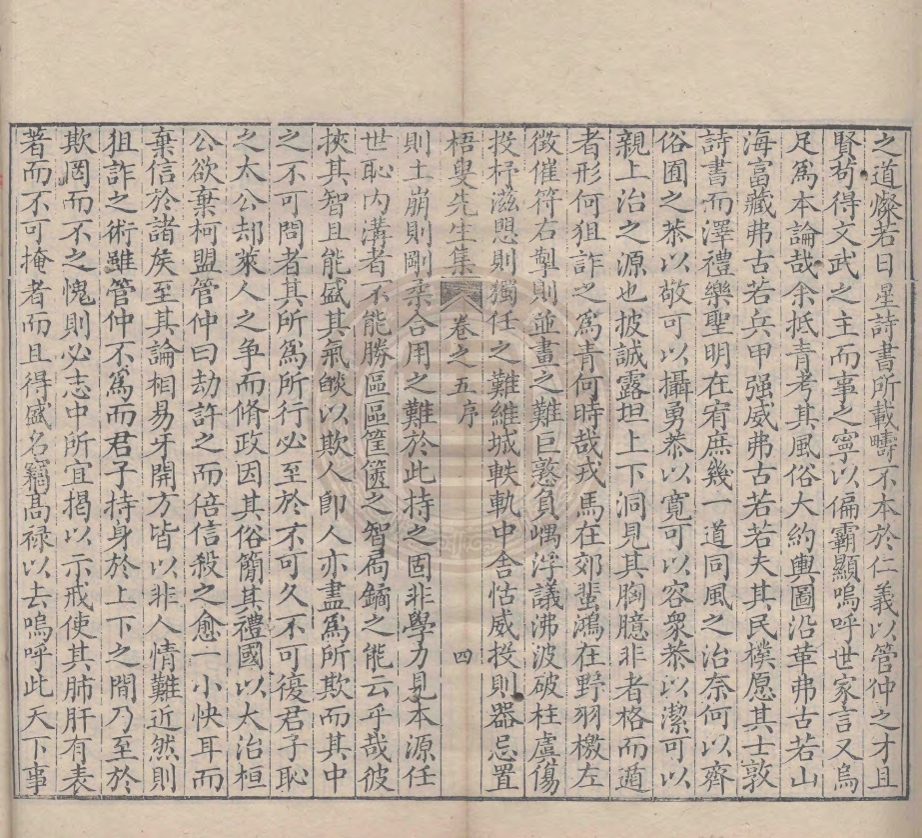 之道燦若日星詩書所載疇不本於仁義以管仲之才且
賢苟得文武之主而事之寧以偏霸顯嗚呼世家言又烏
足爲本論哉余抵青考其風俗大約輿圖沿革弗古若山
海富藏弗古若兵甲强威弗古若若夫其民樸愿其士敦
詩書而澤禮樂聖明在宥庶幾一道同風之治奈何以齊
俗囿之恭以敬可以攝勇恭以寬可以容衆恭以潔可以
親上治之源也披誠露坦上下洞見其胸臆非者格而遁
者形何狙詐之爲青何時哉戎馬在郊蜚鴻在野羽檄左
徵催符右掣則並畫之難巨憝負嵎浮議沸波破柱虞傷
投杼滋愳則獨任之難維城軼軌中舍怙威投則器忌置
梧叟先生集 卷之五序 四
則土崩則剛柔合用之難於此持之固非學力見本源任
世恥内溝者不能勝區區筐篋之智扃鐍之能云乎哉彼
挾其智且能盛其氣燄以欺人卽人亦盡爲所欺而其中
之不可問者其所爲所行必至於不可久不可復君子恥
之太公却萊人之爭而脩政因其俗簡其禮國以大治桓
公欲棄柯盟管仲曰劫許之而倍信殺之愈一小快耳而
棄信於諸矦至其論相易牙開方皆以非人情難近然則
狙詐之術雖管仲不爲而君子持身於上下之間乃至於
欺罔而不之愧則必志中所宜揭以示戒使其肺肝有表
著而不可掩者而且得盛名竊高禄以去嗚呼此天下事